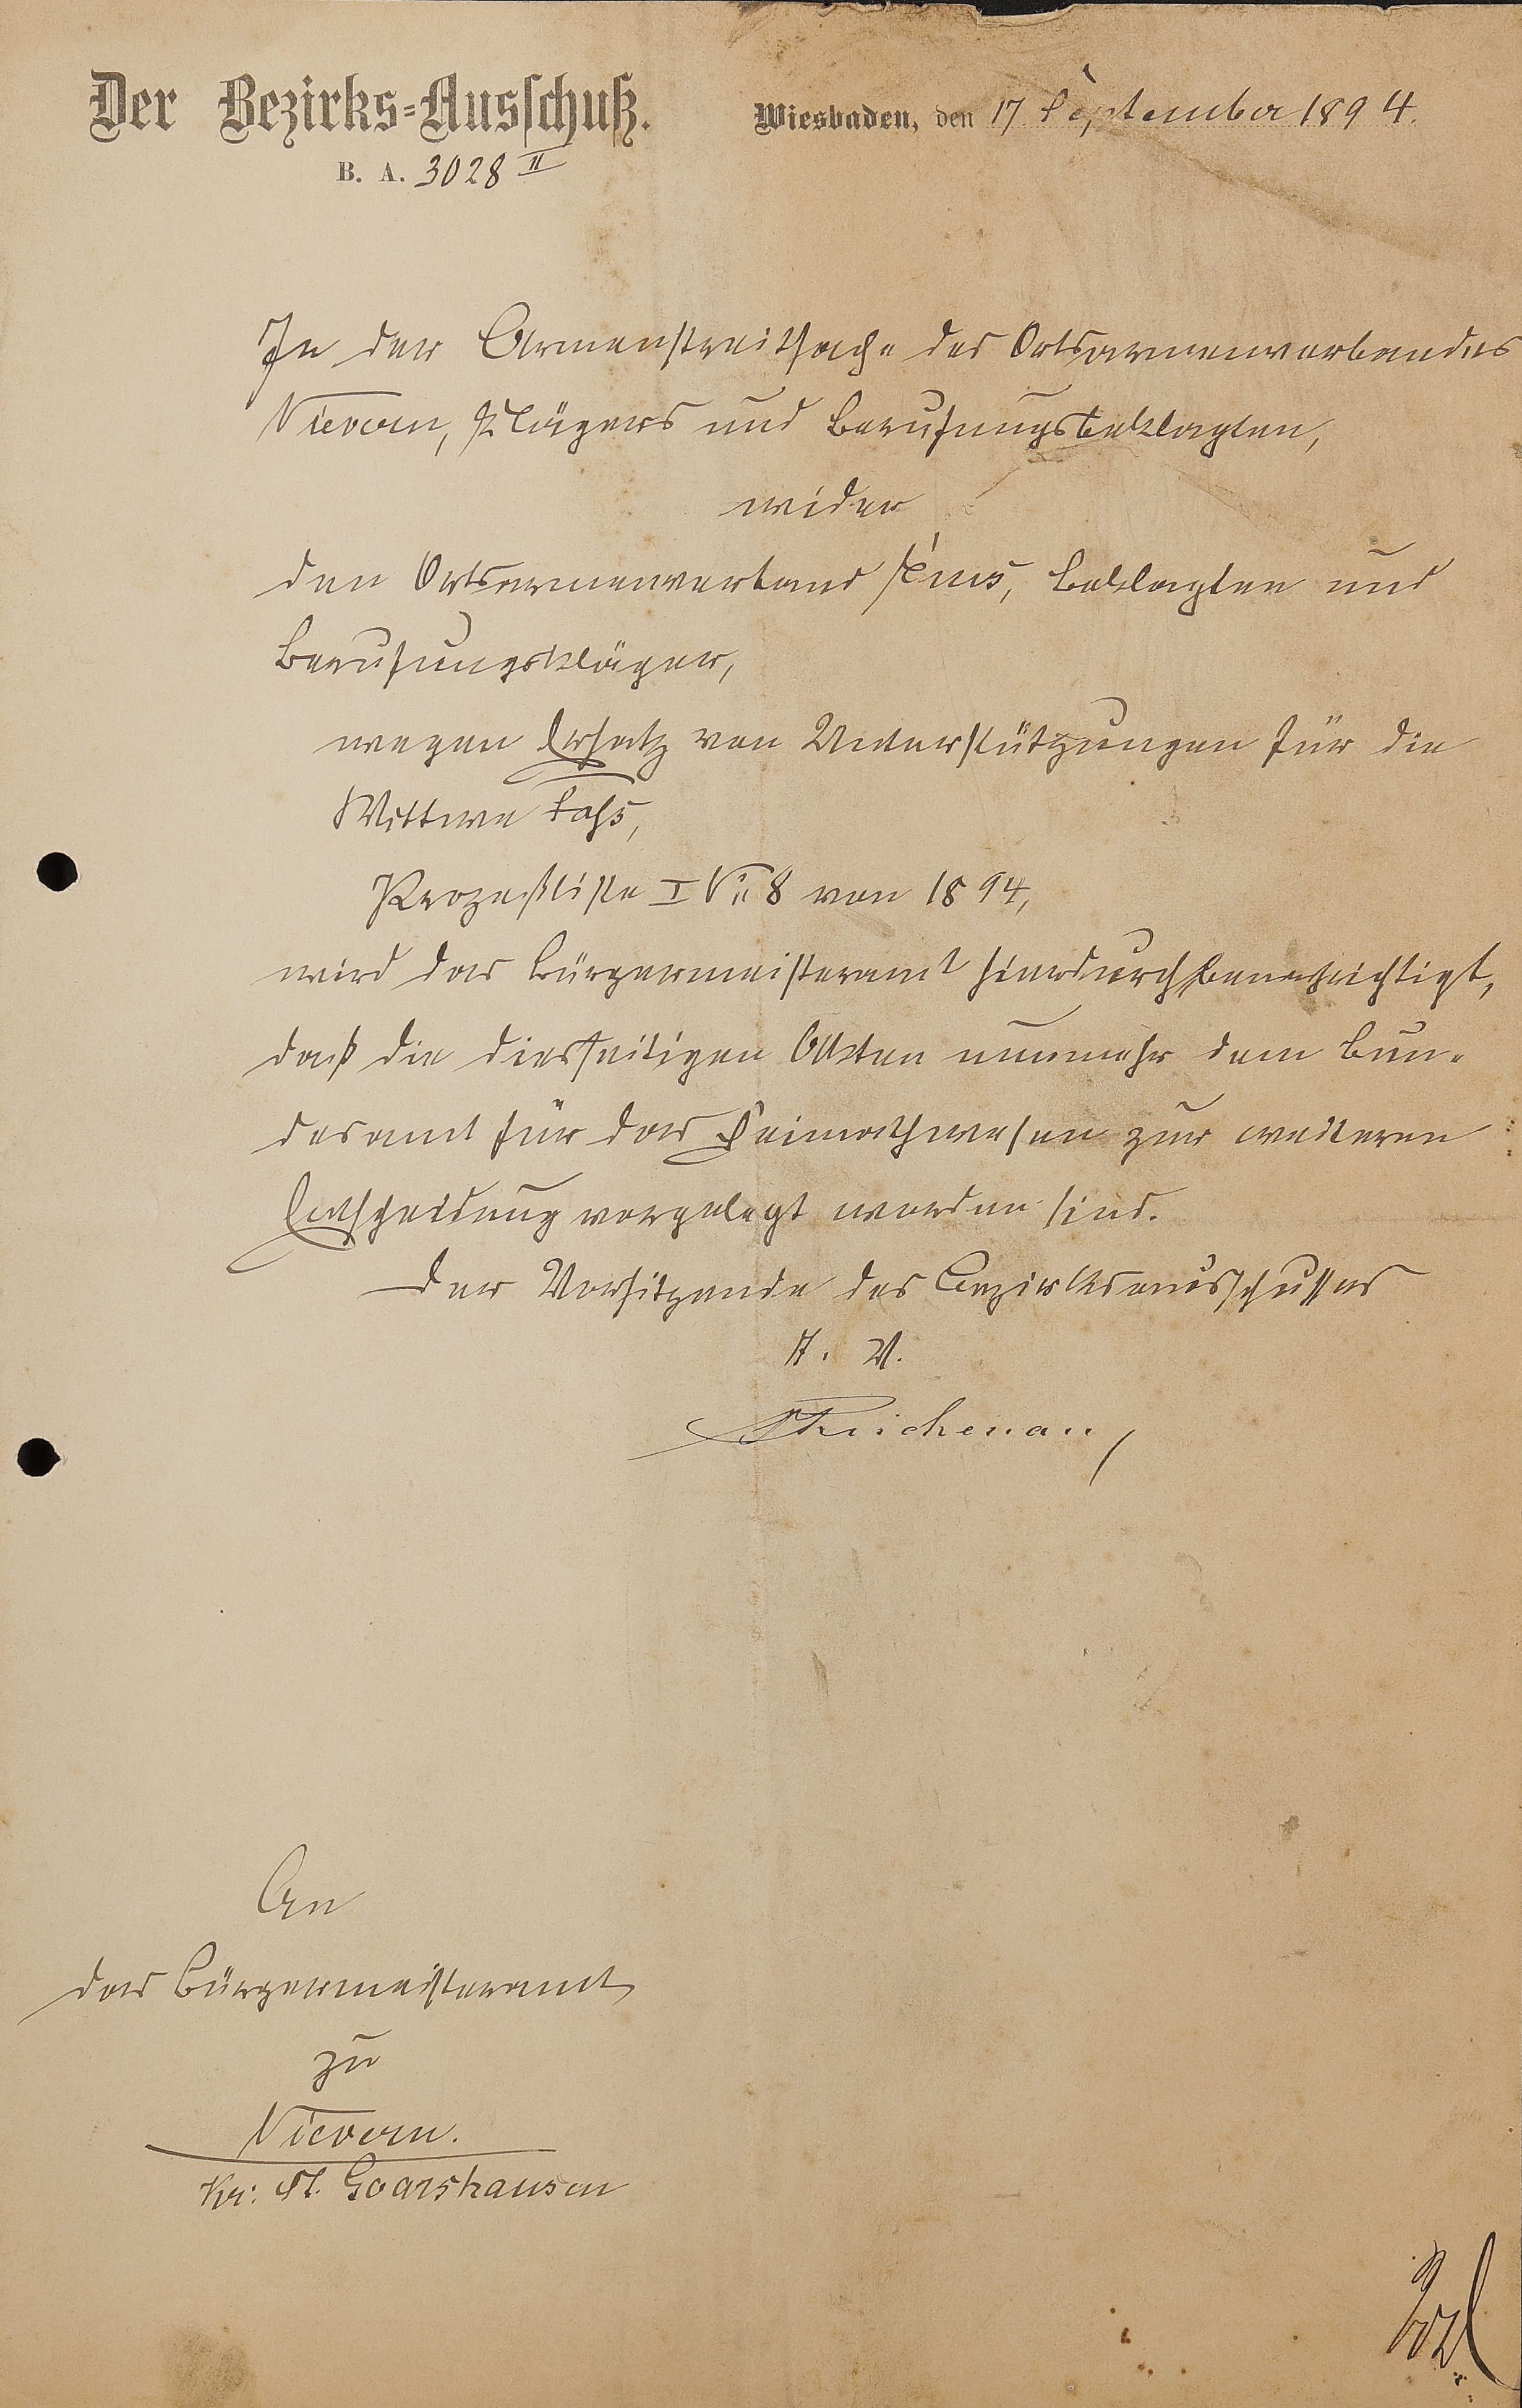 Der Bezirks-Ausschuß.
Wiesbaden, den 17 September 1894.
B. A. 3028 II
In der Armenstreitsache des Ortsarmenverbandes
Nievern, Klägers und Berufungsbeklagten,
wider
den Ortsarmenverband Ems, Beklagten und
Berufungskläger,
wegen Ersatz von Unterstützungen für die
Wittwe
Prozeßliste I No 8 von 1894,
wird das Bürgermeisteramt hierdurch benachrichtigt,
daß die diesseitigen Akten nunmehr dem Bun-
desamt für das Heimathwesen zur weiteren
Entscheidung vorgelegt worden sind.
Der Vorsitzende des Bezirksausschusses
I. V.
Reichenau
An
das Bürgermeisteramt
zu
Nievern.
Kr: St. Goarshausen